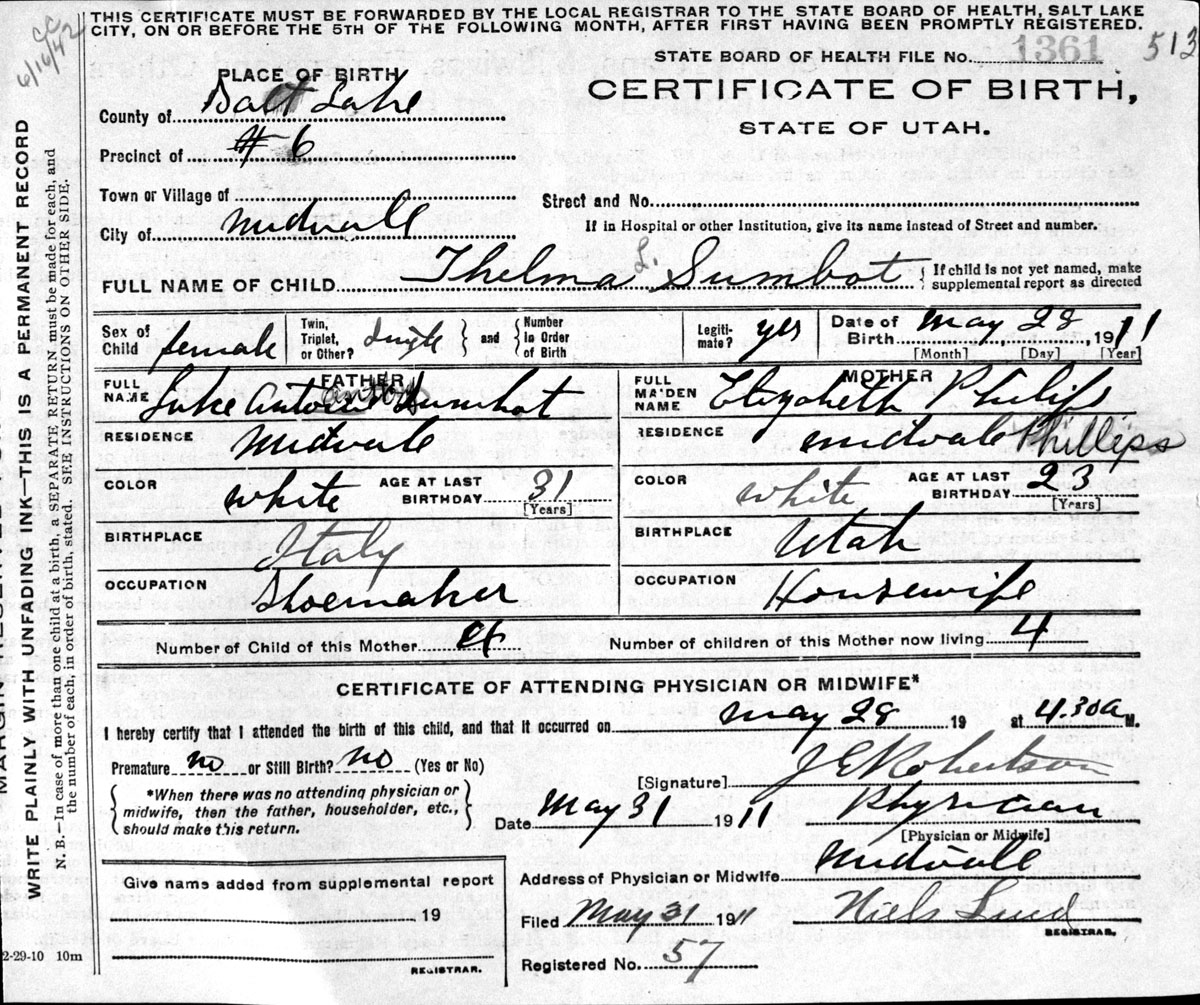 THIS CERTIFICATE MUST BE FORWARDED BY THE LOCAL REGISTRAR TO THE STATE BOARD OF HEALTH, SALT LAKE
CITY, ON OR BEFORE THE 5TH OF THE FOLLOWING MONTH, AFTER FIRST HAVING BEEN PROMPTLY REGISTERED.
6/16/42
513
STATE BOARD OF HEALTH FILE No. 1361
CERTIFICATE OF BIRTH,
STATE OF UTAH.
PLACE OF BIRTH
County of Salt Lake
Precinct of #6
Town or Village of
City of Midvale
Street and No.
If in Hospital or other Institution, give its name instead of Street and number.
FULL NAME OF CHILD Thelma L. Sumbot { If child is not yet named, make supplemental report as directed
Sex of Child female
Twin, Triplet, or Other? } and { Number in Order of Birth
Legitimate? yes
Date of Birth May 28, 1911
[Month] [Day] [Year]
FATHER
FULL NAME Luke Sumbot
RESIDENCE Midvale
COLOR white AGE AT LAST BIRTHDAY 31
[Years]
BIRTHPLACE Italy
OCCUPATION Shoemaker
MOTHER
FULL MAIDEN NAME Elizabeth Philips
Phillips
RESIDENCE Midvale
COLOR white AGE AT LAST BIRTHDAY 23
[Years]
BIRTHPLACE Utah
OCCUPATION Housewife
Number of Child of this Mother 4
Number of children of this Mother now living 4
CERTIFICATE OF ATTENDING PHYSICIAN OR MIDWIFE*
I hereby certify that I attended the birth of this child, and that it occurred on May 28 19 at 4.30a M.
Premature no or Still Birth? no (Yes or No)
{ *When there was no attending physician or midwife, then the father, householder, etc., should make this return. }
[Signature] J E Robertson
Date May 31 1911 Physician
[Physician or Midwife]
Address of Physician or Midwife Midvale
Filed May 31 1911 Niels Lind
REGISTRAR.
Registered No. 57
Give name added from supplemental report
19
REGISTRAR.
2-29-10 10m
WRITE PLAINLY WITH UNFADING INK—THIS IS A PERMANENT RECORD
N. B.—In case of more than one child at a birth, a SEPARATE RETURN must be made for each, and
the number of each, in order of birth, stated. SEE INSTRUCTIONS ON OTHER SIDE.